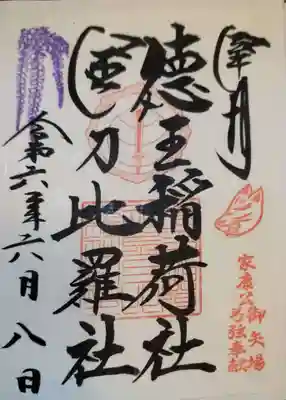 家康公御矢場
弓弦奉献
徳王稲荷社
金刀比羅社
令和六年六月八日